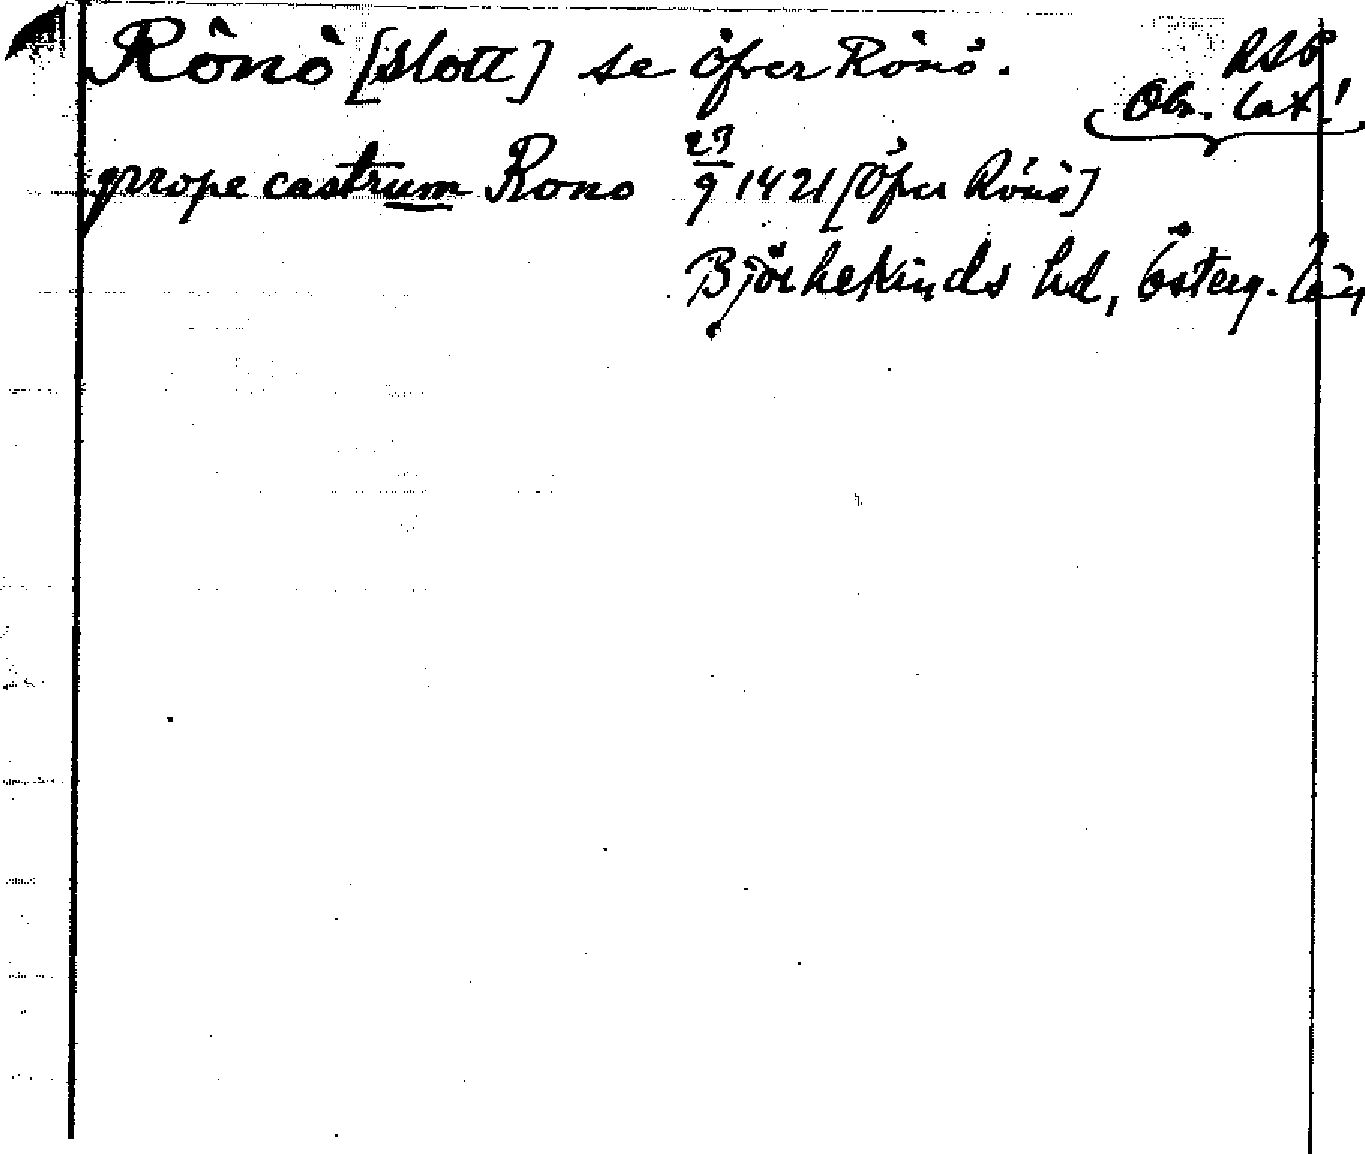 Rönö [slott] se Öfver Rönö.
RSb
Obs. lat!
prope castrum Rono 23/9 1421 [Öfver Rönö]
Björkekinds hd, Österg. län